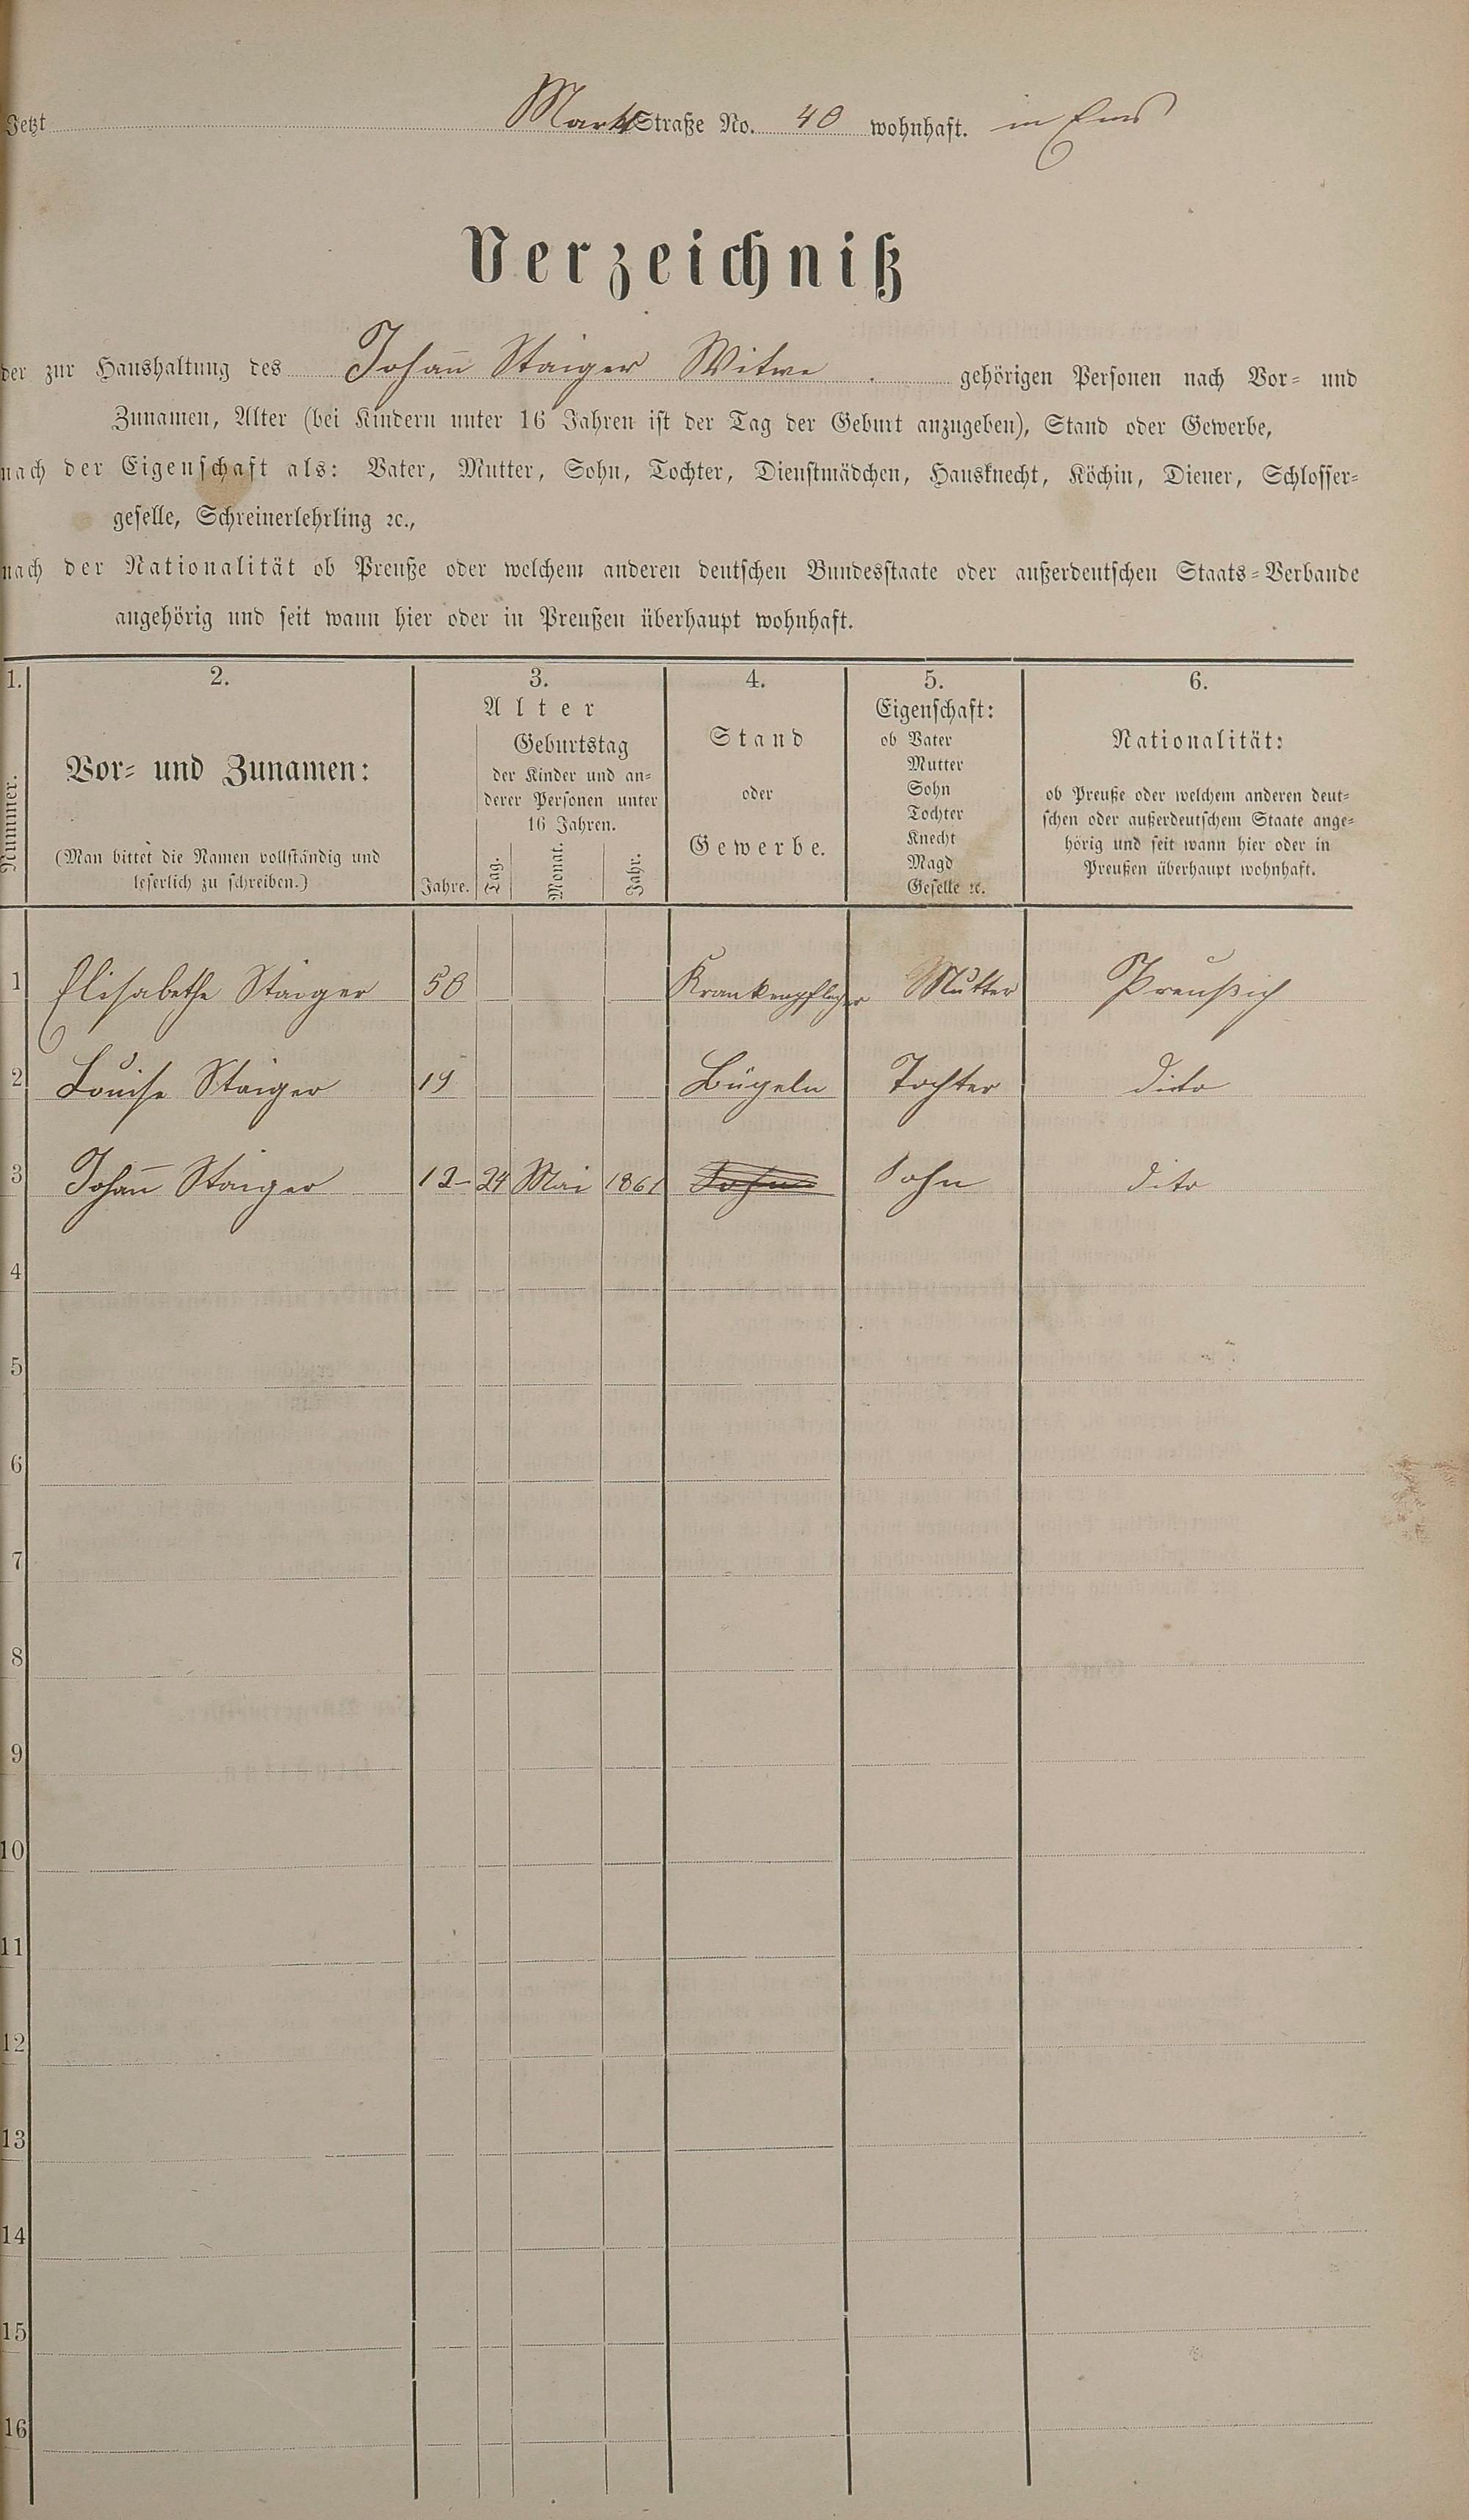 Jetzt Markt Straße No. 40 wohnhaft. in Ems
Verzeichniß
der zur Haushaltung des Johan̄ Staiger Witwe gehörigen Personen nach Vor- und
Zunamen, Alter (bei Kindern unter 16 Jahren ist der Tag der Geburt anzugeben), Stand oder Gewerbe,
nach der Eigenschaft als: Vater, Mutter, Sohn, Tochter, Dienstmädchen, Hausknecht, Köchin, Diener, Schlosser-
geselle, Schreinerlehrling ꝛc.,
nach der Nationalität ob Preuße oder welchem anderen deutschen Bundesstaate oder außerdeutschen Staats-Verbande
angehörig und seit wann hier oder in Preußen überhaupt wohnhaft.
1.
Nummer.
2.
Vor- und Zunamen:
(Man bittet die Namen vollständig und
leserlich zu schreiben.)
3.
Alter
Jahre.
Geburtstag
der Kinder und an-
derer Personen unter
16 Jahren.
Tag. Monat. Jahr.
4.
Stand
oder
Gewerbe.
5.
Eigenschaft:
ob Vater
Mutter
Sohn
Tochter
Knecht
Magd
Geselle ꝛc.
6.
Nationalität:
ob Preuße oder welchem anderen deut-
schen oder außerdeutschem Staate ange-
hörig und seit wann hier oder in
Preußen überhaupt wohnhaft.
1 Elisabethe Staiger 50 Krankenpfleger Mutter Preußich
2 Louise Staiger 19 Bügeln Tochter dito
3 Johan̄ Staiger 12 24 Mai 1861 Sohn dito
4
5
6
7
8
9
10
11
12
13
14
15
16